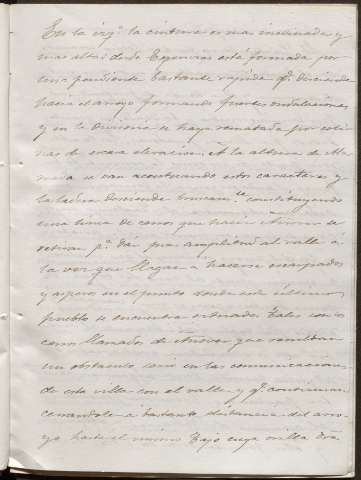 En la izq.ª la cintura es mas inclinada y
mas alta: desde Esquivias está formada por
una pendiente bastante rapida q.e desciende
hacia el arroyo formando fuertes ondulaciones
y en la divisoria se haya rematada por colinas
nas de escasa elevacion. A la altura de
se van acentuando estos caracteres y
la ladera desciende bruscam.te constituyendo
una linea de cerros que hacia se
retiran p.ª dar mas amplitud al valle á
la vez que llegan á hacerse escarpados
y asperos en el punto donde este último
pueblo se encuentra situado. Tales son los
cerros llamados de que constituyen
un obstaculo serio en las comunicaciones
de esta villa con el valle y q.e continuan
cerrandole á bastante distancia del arro-
yo hasta el mismo Tajo cuya orilla dra.